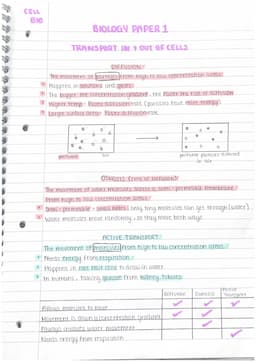 CELL
BIO
BIOLOGY PAPER 1
TRANSPORT IN + OUT OF CELLS
DIFFUSION:
The movement of particles from high to low concentration areas.
Happens in solutions and gases.
The bigger the concentration gradient, the faster the rate of diffusion
Higher temp - faster diffusion rate (particles have more energy)
Large surface area - faster diffusion rate.
perfume
air
perfume particles diffused
in air
OSMOSIS (type of diffusion):
The movement of water molecules across a semi-permeable membrane
from high to low concentration areas.
Semi-permeable - small holes, only tiny molecules can get through (water).
Water molecules move randomly, so they move both ways.
ACTIVE TRANSPORT:
The movement of molecules from high to low concentration areas.
Needs energy from respiration.
Happens in root hair cells to draw in water
In humans, taking glucose from kidney tubules.
Diffusion
Osmosis
Active
Transport
Allows molecules to move
Movement is down a concentration gradient
Always involves water movement
Needs energy from respiration